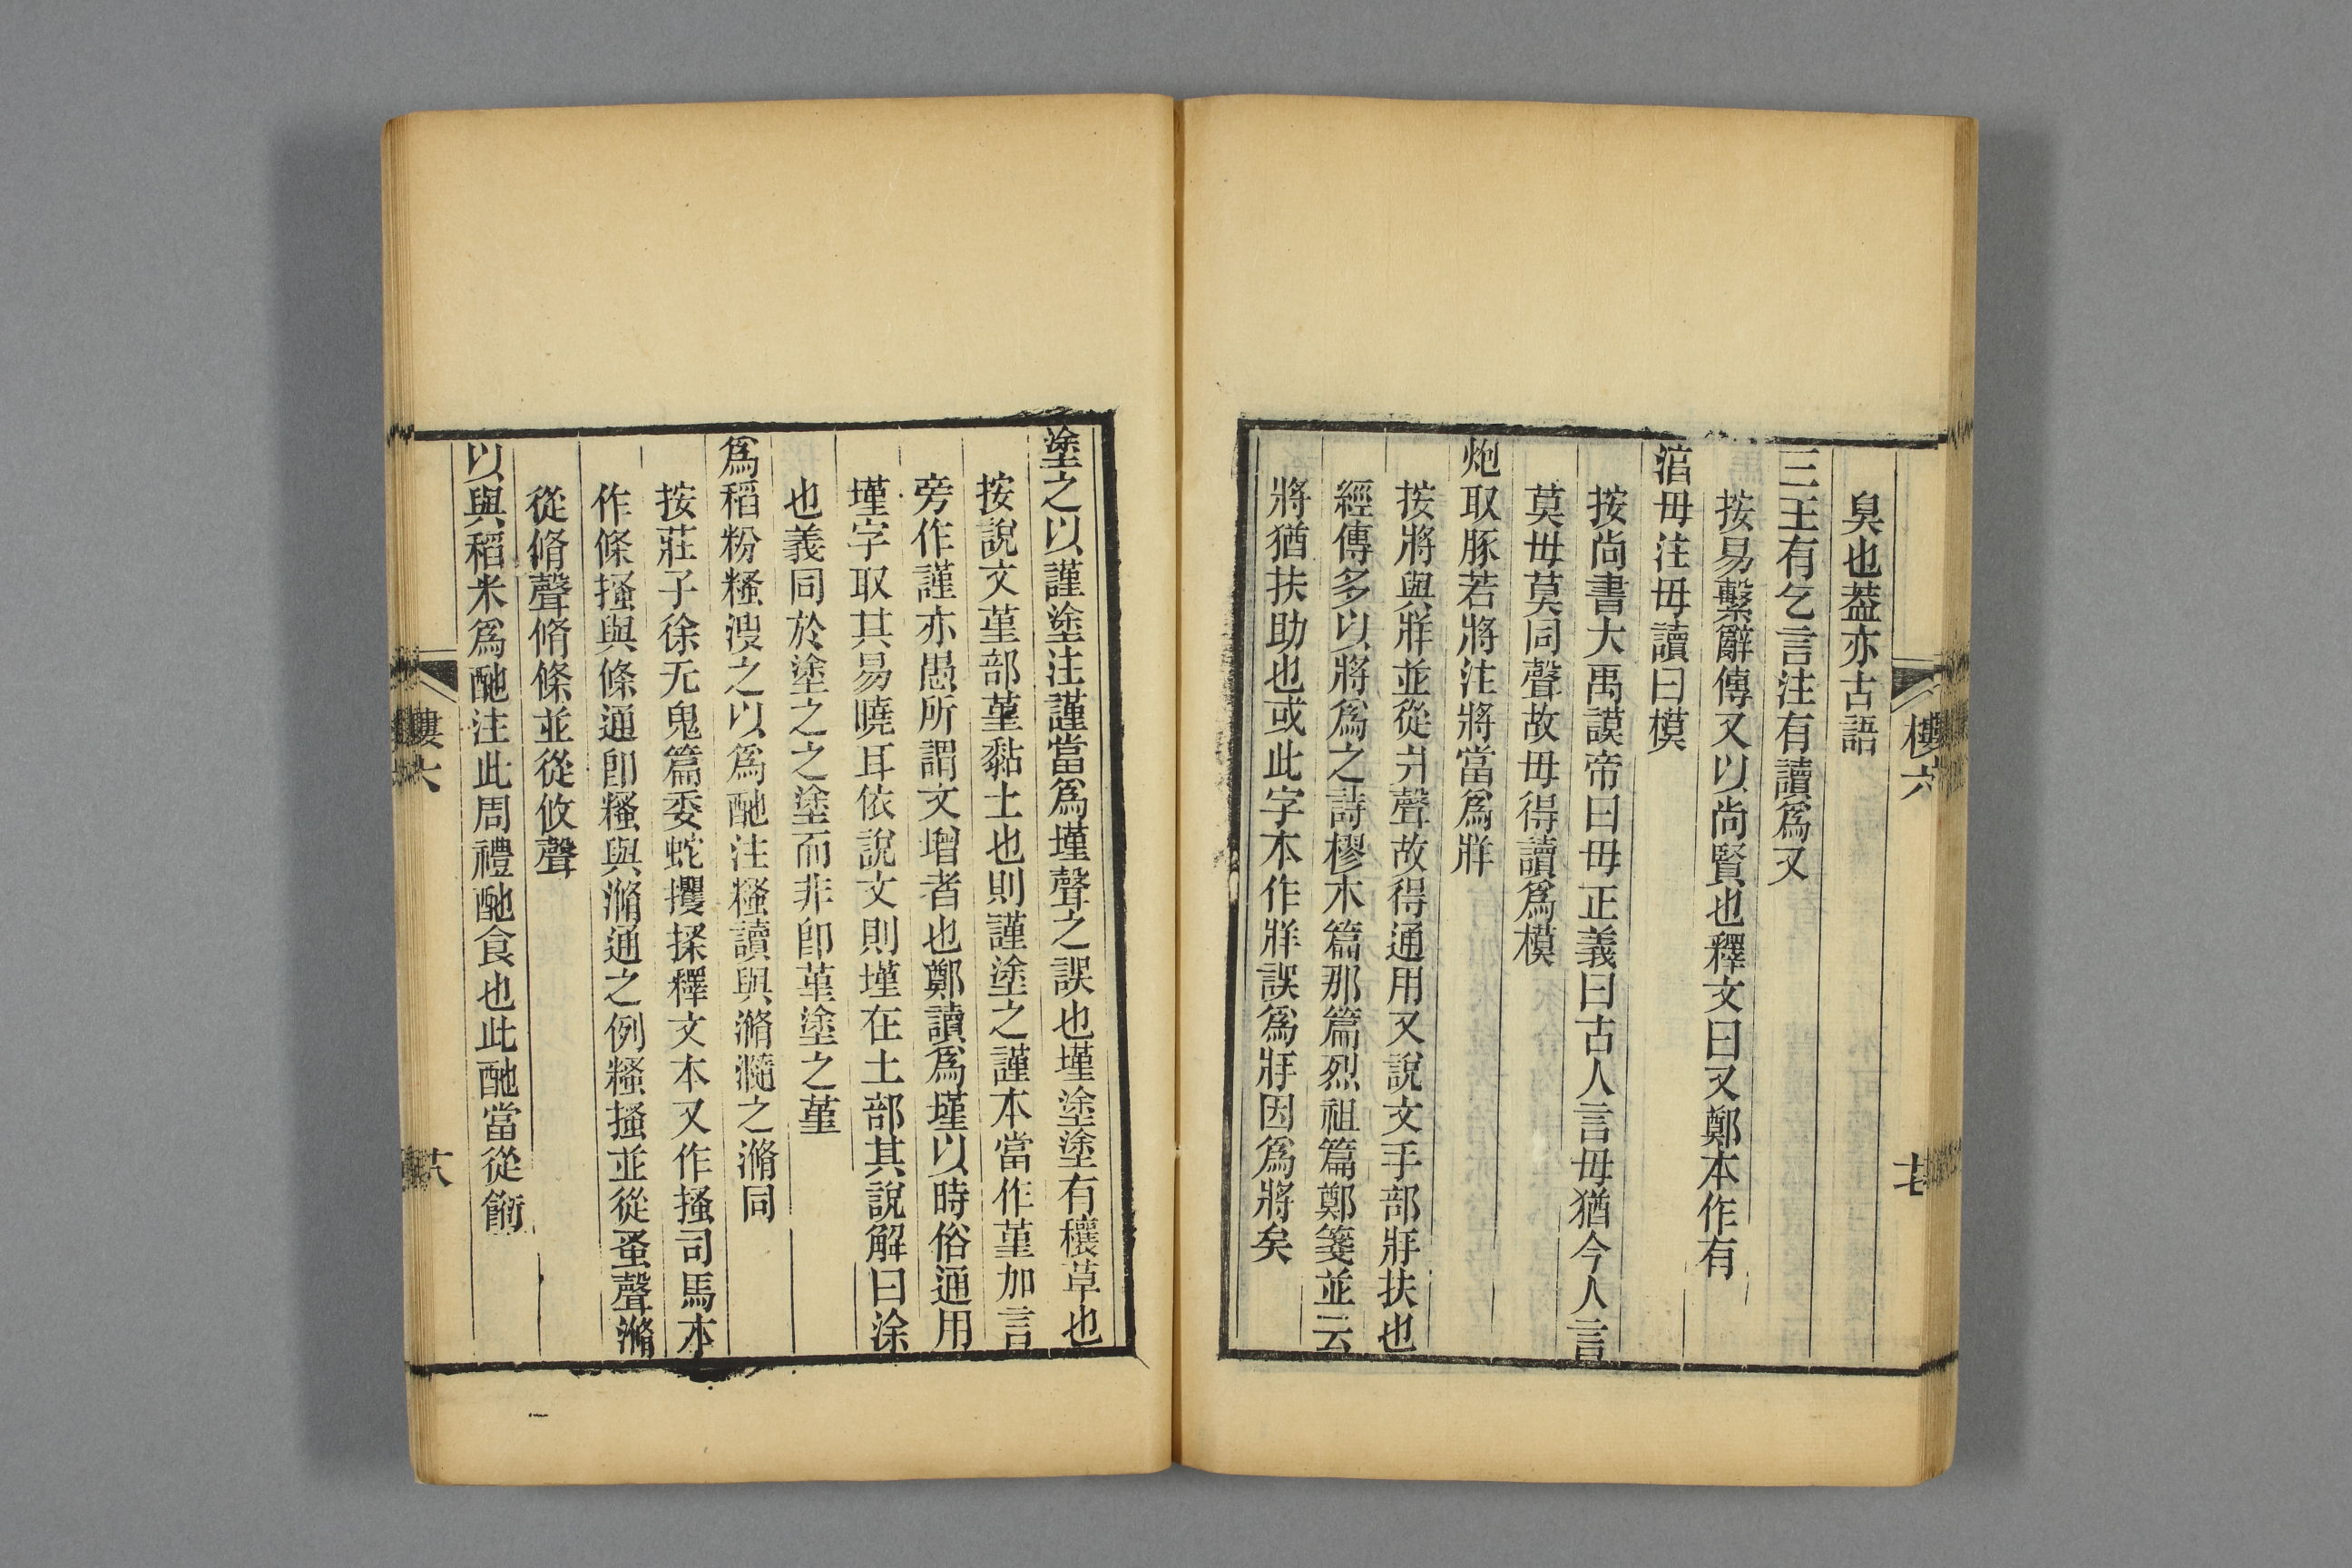 臭也葢亦古語
三王有乞言注有讀爲又
按易繫辭傳又以尚賢也釋文曰又鄭本作有
淯毋注毋讀曰模
按尚書大禹謨帝曰毋正義曰古人言毋猶今人言
莫毋莫同聲故毋得讀爲模
炮取豚若將注將當爲牂
按將與牂並從爿聲故得通用又說文手部牂扶也
經傳多以將爲之詩樛木篇那篇烈祖篇鄭箋並云
將猶扶助也或此字本作牂誤爲牂因爲將矣
樓六
塗之以謹塗注謹當爲墐聲之誤也墐塗塗有穰草也
按說文堇部堇黏土也則謹塗之謹本當作堇加言
旁作謹亦愚所謂文增者也鄭讀爲墐以時俗通用
墐字取其易曉耳依說文則墐在土部其說解曰涂
也義同於塗之之塗而非卽堇塗之堇
爲稻粉糔溲之以爲酏注糔讀與滫瀡之滫同
按莊子徐无鬼篇委蛇攫搔釋文本又作搔司馬本
作條搔與條通卽糔與滫通之例糔搔並從蚤聲滫
從脩聲脩條並從攸聲
以與稻米爲酏注此周禮酏食也此酏當從䬳
樓六